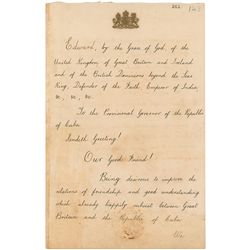 Edward, by the Grace of God, of the
United Kingdom of Great Britain and Ireland
and of the British Dominions beyond the Seas
King, Defender of the Faith, Emperor of India,
&c., &c., &c.
To the Provisional Governor of the Republic
of Cuba
Sendeth Greeting!
Our Good Friend!
Being desirous to improve the
relations of friendship and good understanding
which already happily subsist between Great
Britain and the Republic of Cuba
We